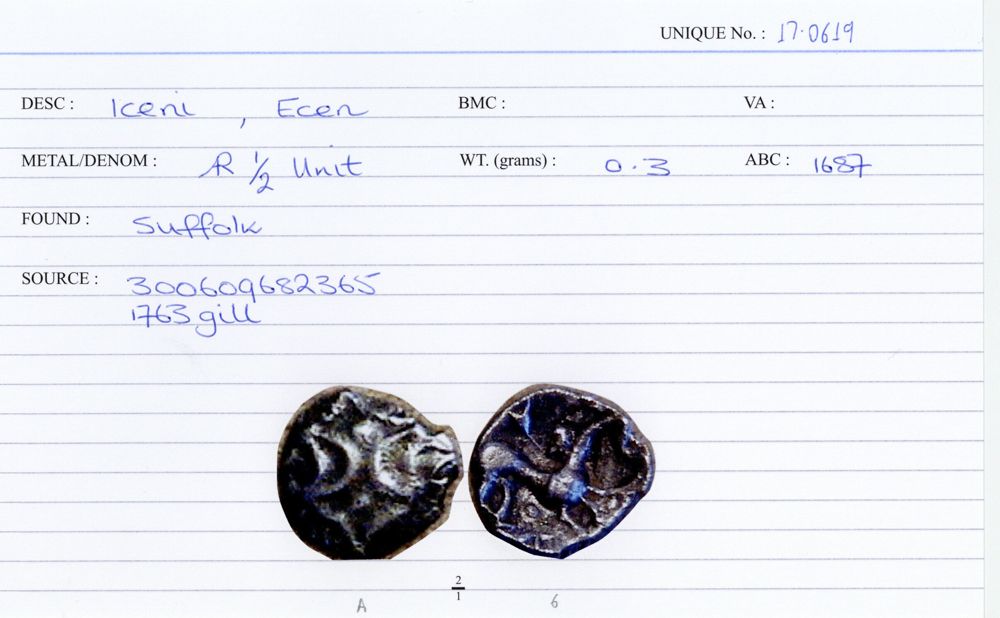 UNIQUE No. : 17.0619
DESC : Iceni , Ecen BMC : VA :
METAL/DENOM : AR 1/2 Unit WT. (grams) : 0.3 ABC : 1687
FOUND : Suffolk
SOURCE : 300609682365
1763gill
2/1
A 6